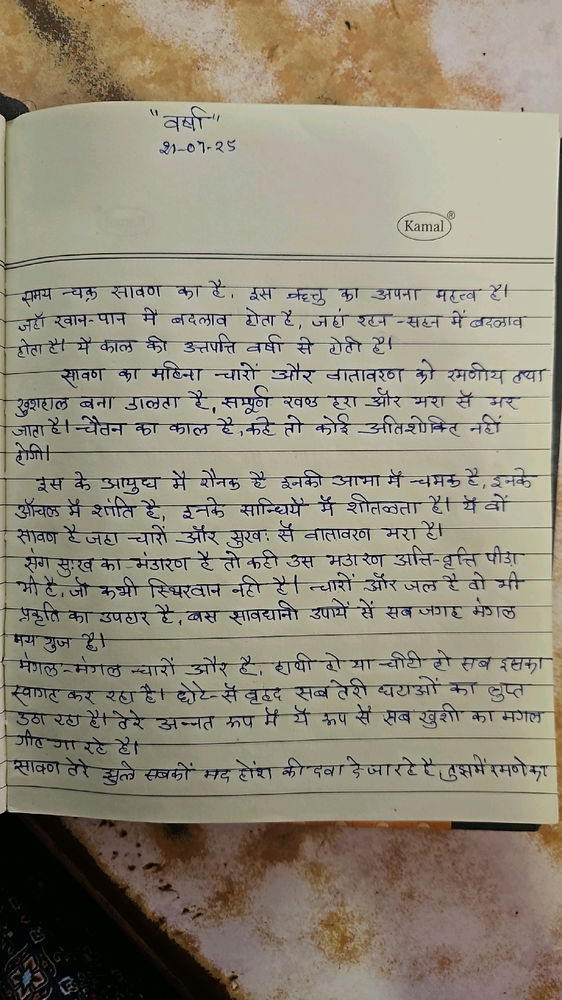 "वर्षा"
21-07-25
Kamal®
समय चक्र सावण का है, इस ऋतु का अपना महत्व है।
जहाँ खान-पान में बदलाव होता है, जहां रहन-सहन में बदलाव
होता है। ये काल की उत्तपत्ति वर्षा से होती है।
सावण का महिना चारों और वातावरण को रमणीय तथा
खुशहाल बना डालता है, सम्पूर्ण खण्ड हरा और भरा सें भर
जाता है। चैतन का काल है, कहे तो कोई अतिशोक्ति नहीं
होगी।
इस के आयुध में रौनक है इनकी आभा में चमक है, इनके
आँचल में शांति है, इनके सान्धियें में शीतलता है। ये वों
सावण है जहा चारों और सुखः सें वातावरण भरा है।
संग सुःख का भंडारण है तो कही उस भडारण अति-वृत्ति पीडा
भी है, जो कभी स्थिरवान नही है। चारों और जल है वो भी
प्रकृति का उपहार है, बस सावधानी उपायें सें सब जगह मंगल
मय गुज है।
मंगल-मंगल चारों और है, हाथी हो या चीटी हो सब इसका
स्वागत कर रहा है। छोटे-सें वृहद सब तेरी घटाओं का लुप्त
उठा रहा है। तेरे अन्नत रूप में ये रूप सें सब खुशी का मगल
गीत गा रहे है।
सावण तेरे झुले सबकों मद होंश की दवा दे जा रहे है, तुझमें रमणे का